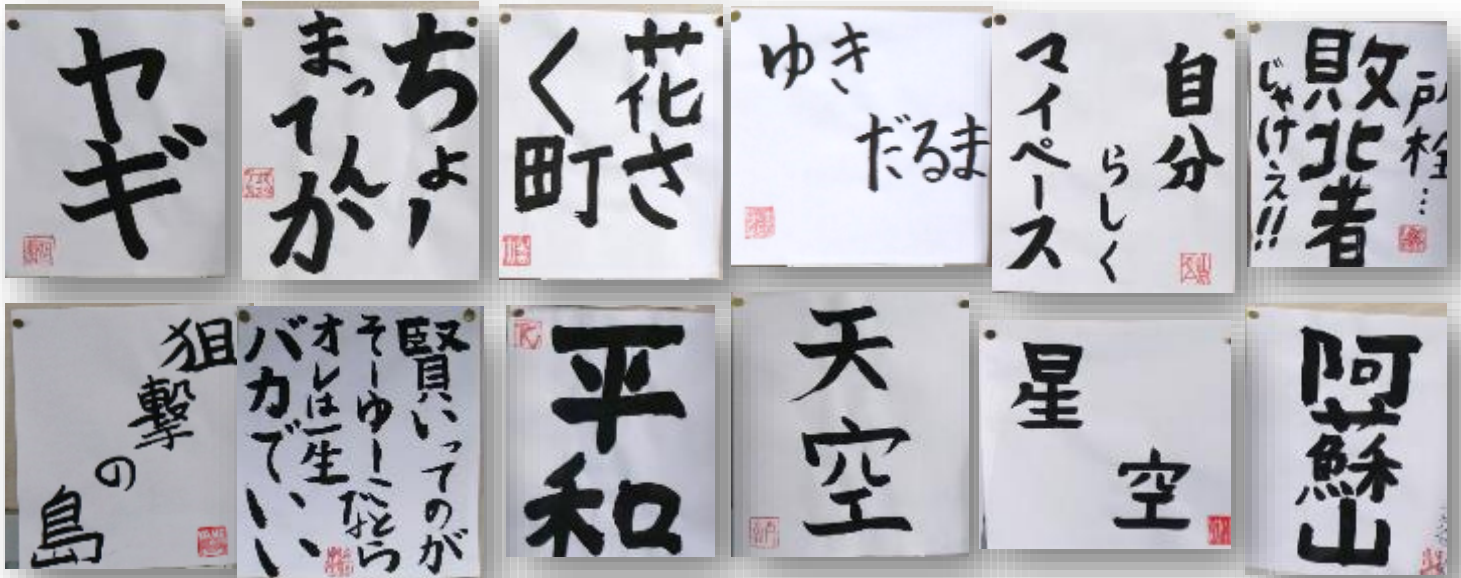 ヤギ
ちょー
まってんか
花さ
く町
ゆき
だるま
自分
らしく
マイペース
所詮…
敗北者
じゃけえ!!
狙撃の島
賢いってのが
そーゆーことなら
オレは一生
バカでいい
平和
天空
星空
阿蘇山